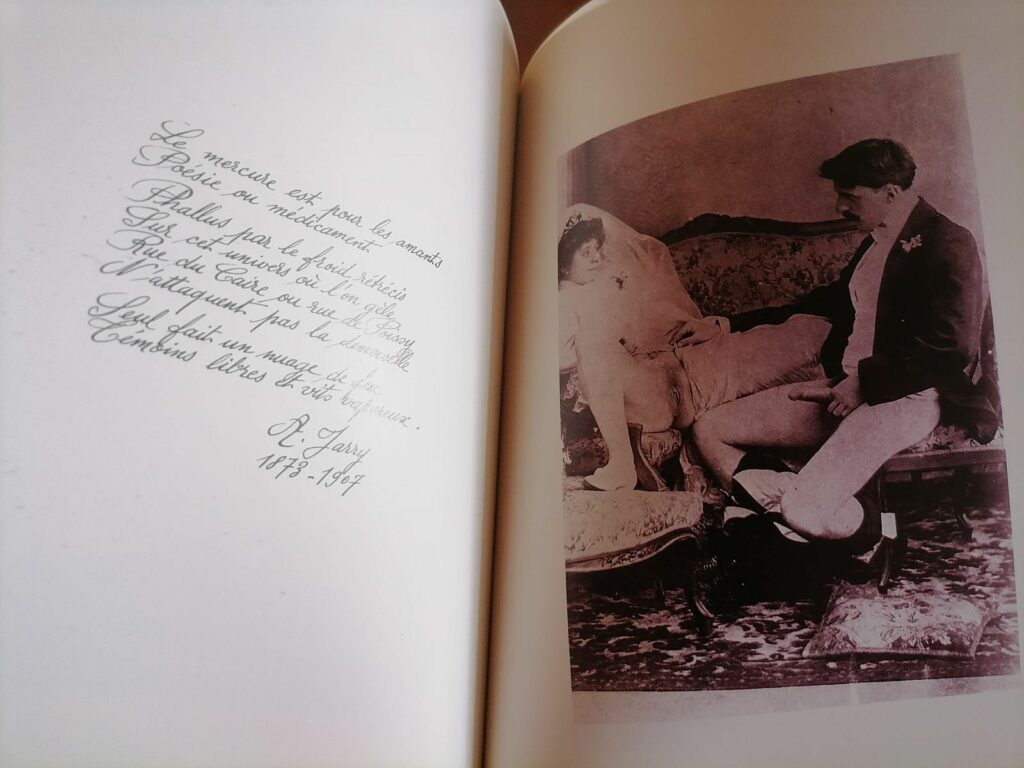 Le mercure est pour les amants
Poésie ou médicament
Phallus par le froid rétrécis
Sur cet univers où l'on gèle
Rue du Caire ou rue de Poissy
N'attaquent pas la demoiselle
Seul fait un nuage de feu
Témoins libres et vits vaporeux.
A. Jarry
1873-1907